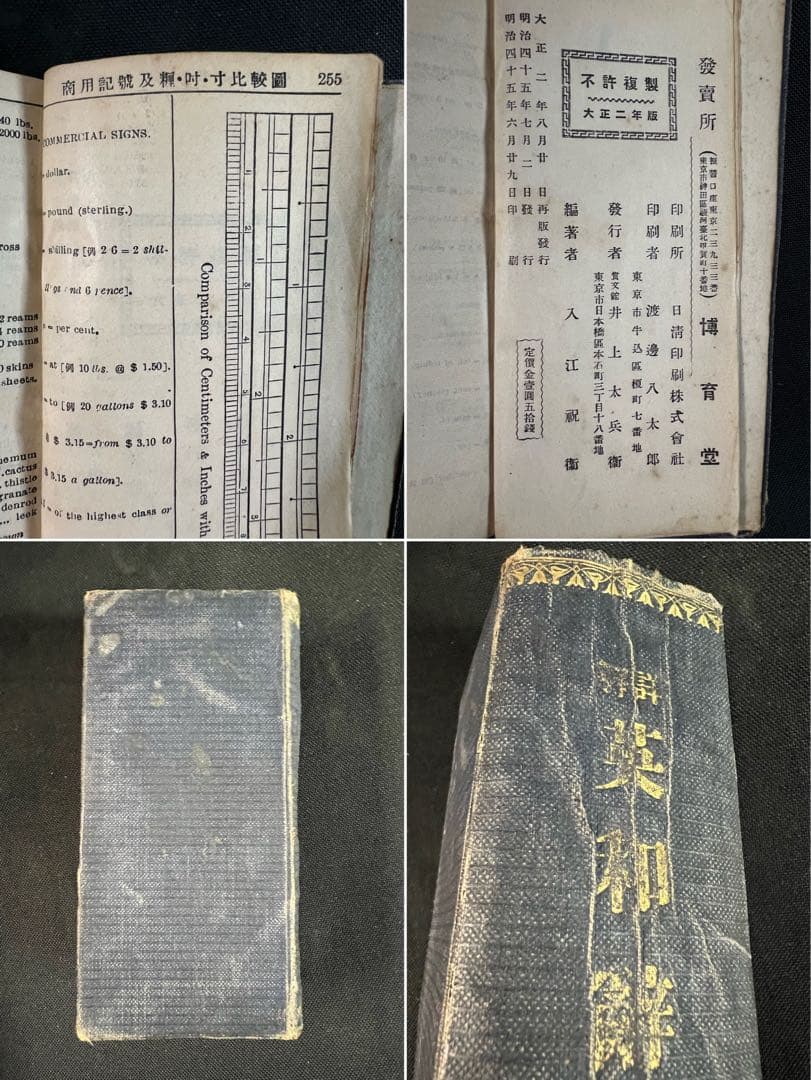 商用記號及糎・吋・寸比較圖 255
40 lbs.
2000 lbs.
COMMERCIAL SIGNS.
dollar.
pound (sterling.)
shilling [例 2/6 = 2 shil-
lings and 6 pence].
= per cent.
= at [例 10 lbs. @ $ 1.50].
= to [例 20 gallons $ 3.10
@ $ 3.15=from $ 3.10 to
$ 3.15 a gallon].
= of the highest class or
2 reams
reams
0 reams
skins
sheets.
cactus
thistle
leek
Comparison of Centimeters & Inches with
不許複製
大正二年版
大正二年八月廿日再版發行
明治四十五年七月二日發行
明治四十五年六月廿九日印刷
發賣所
東京市神田區駿河臺北甲賀町十番地
振替口座東京二三九三三番
博育堂
印刷所 日清印刷株式會社
印刷者 渡邊八太郎
東京市牛込區榎町七番地
發行者 井上太兵衞
東京市日本橋區本石町三丁目十八番地
編著者 入江祝衞
定價金壹圓五拾錢
詳解
英和辭